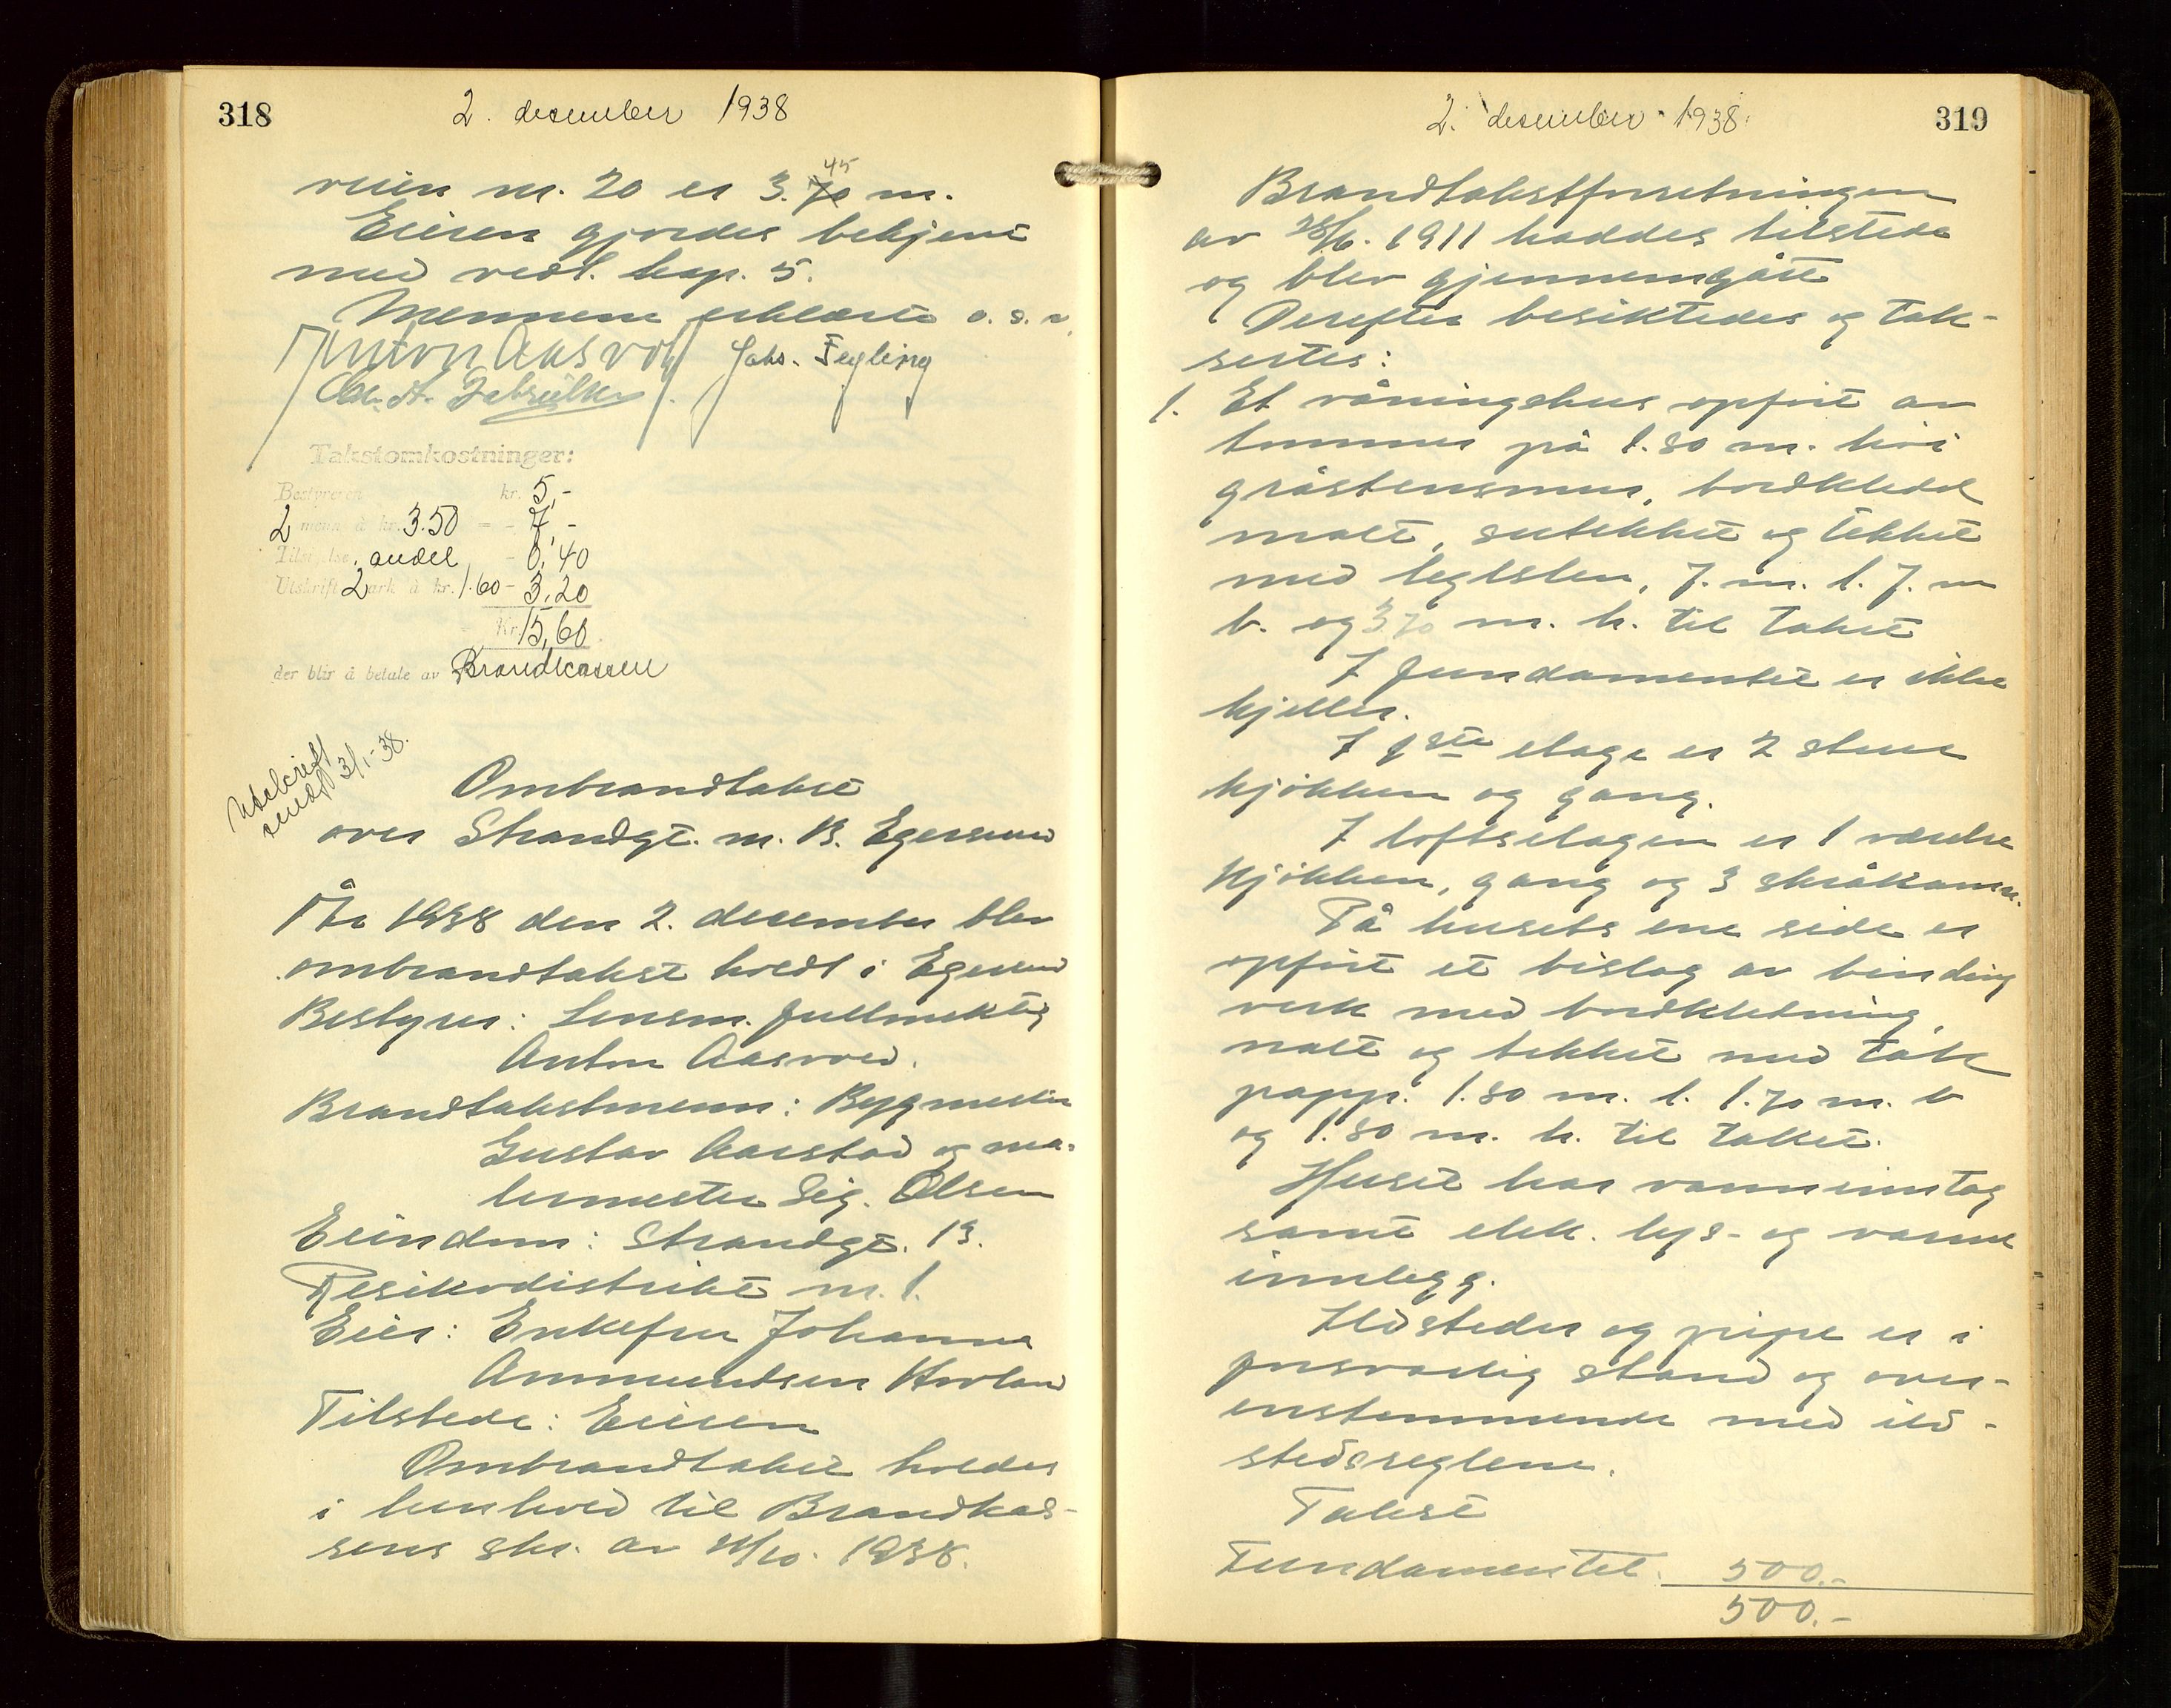 318
2. desember 1938
veien nr. 20 er 3.70 m.
45
Eieren gjordes bekjent
med vedt. kap. 5.
Mennene erklærte o. s. v.
Anton Aasvold Jahs. Tegling
Takstomkostninger:
Bestyreren kr. 5,-
2 menn à kr. 3.50 = - 7,-
Tilsigelse, andel - 0,40
Utskrift 2 ark à kr. 1.60 - 3,20
Kr. 15,60
der blir å betale av Brandkassen
Utskrift
sendt 3/1-38.
Ombrandtakst
over Strandgt. nr. 13. Egersund
År 1938 den 2. december blev
ombrandtakst holdt i Egersund
Bestyrer: Lensm. fullmektig
Anton Aasvold.
Brandtakstmenn: Bygmester
Gustav Aarstad og ma-
lermester Sig. Olsen
Eiendom: Strandgt. 13.
Resikodistrikt nr. 1.
Eier: Enkefru Johanna
Ammundsen Hovland
Tilstede: Eieren
Ombrandtakst holdes
i henhold til Brandkas-
sens skr. av /10. 1938.
2. desember 1938.
319
Brandtakstforretningen
av 28/6. 1911 haddes tilstede
og blev gjennemgått
Derefter besiktedes og tak-
sertes:
1. Et våningshus opført av
tømmer på 1.80 m. høi
gråstensmur, bordkledd
malt, sutekket og tekket
med teglsten, 7. m. l. 7. m
b. og 3.70 m. h. til taket
I fundamentet er ikke
kjeller.
I 1ste etage er 2 stuer
kjøkken og gang.
I loftsetagen er 1 værelse
kjøkken, gang og 3 skråkamr.
På husets ene side er
opført et bislag av binding
verk med bordkledning,
malt og tekket med tak
papp. 1.80 m. l. 1.70 m. b
og 1.80 m. h. til taket.
Huset har vanninntag
samt elek. lys- og varme
innlegg.
Ildsteder og pipe er i
forsvarlig stand og over-
enstemmende med ild-
stedsreglene.
Takst
Fundamentet. 500.-
500.-